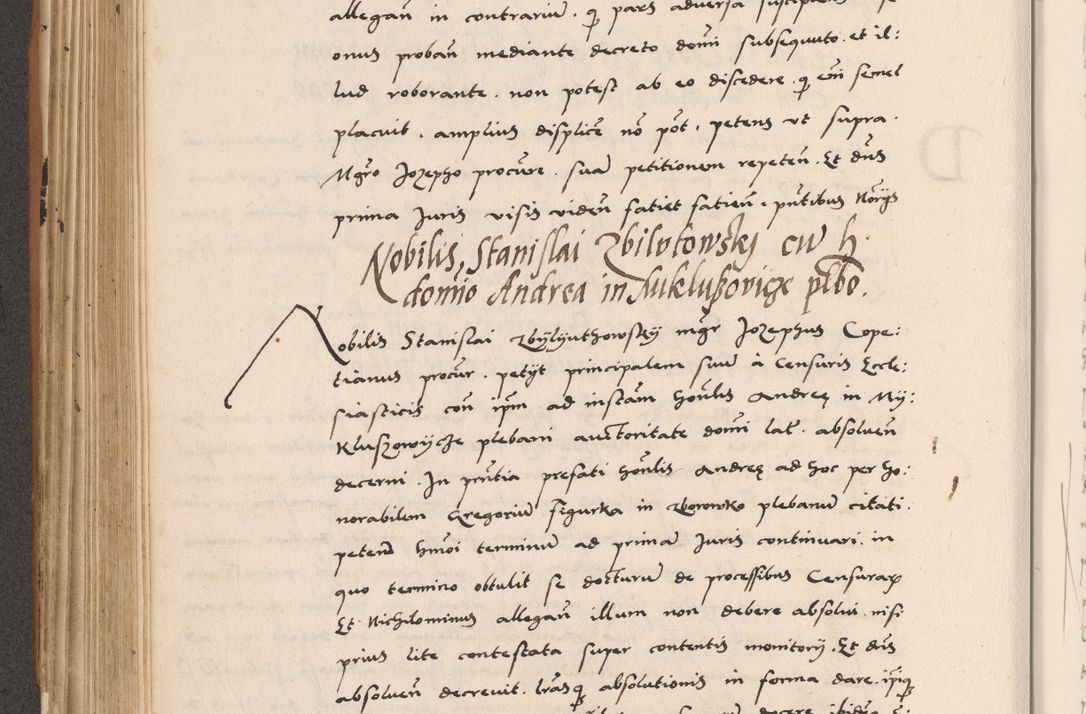 allegan̄ in contrariū . q̄ pars adversa
onus proban̄ mediante decreto domī subsequuto . et il:
lud roborante . non potest ab eo discedere . q̄ em̄ semel
placuit . amplius displicē nō pōt , petens ut supra .
Mgrō Jozepho procūre . suā petitionem repeten̄ . Et dn̄s
prima Juris visis viden̄ fatiet fatien̄ , pn̄tibus Norijs
Nobilis Stanislai Zbilutowskj cū h.
domīo Andrea in Mukluszovicze plbō .
Nobilis Stanislai Zbylyuthowsky mḡr Jozephus Cope:
tianus procūr . petyt principalem suū à Censuris Eccle:
siasticis con̄ ipm̄ ad instam̄ hon̄lis Andreę in My:
Kluszowycze plebani auctoritate domī lat̄ . absolven̄
decerni . In prn̄tia prefati hon̄lis Andreę ad hoc per ho:
norabilem Gregoriū figurka in Zborowko plebanū citati .
peten̄ hmōi terminū ad primā Juris continuari . in
quo termino obtulit se docturū de processibus Censurarꝝ
Et Nichilominus allegan̄ illum non debere absolui . nisi
prius lite contestata super contentis monitorÿ . Et dn̄s
absolven̄ decrevit . lrāsq̨ absolutionis in forma dare . ipīq̨
docere